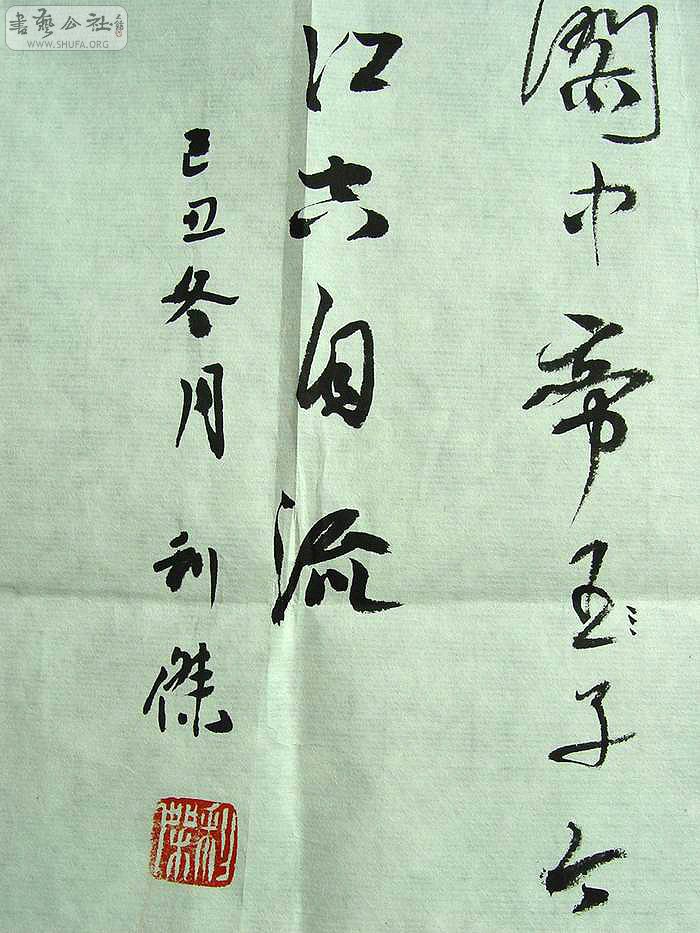 閣中帝王子今
江空自流
己丑冬月 利傑
利傑
書藝公社
WWW.SHUFA.ORG